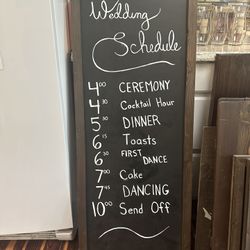 Wedding
Schedule
4:00 CEREMONY
4:30 Cocktail Hour
5:30 DINNER
6:15 Toasts
6:30 FIRST DANCE
7:00 Cake
7:45 DANCING
10:00 Send Off